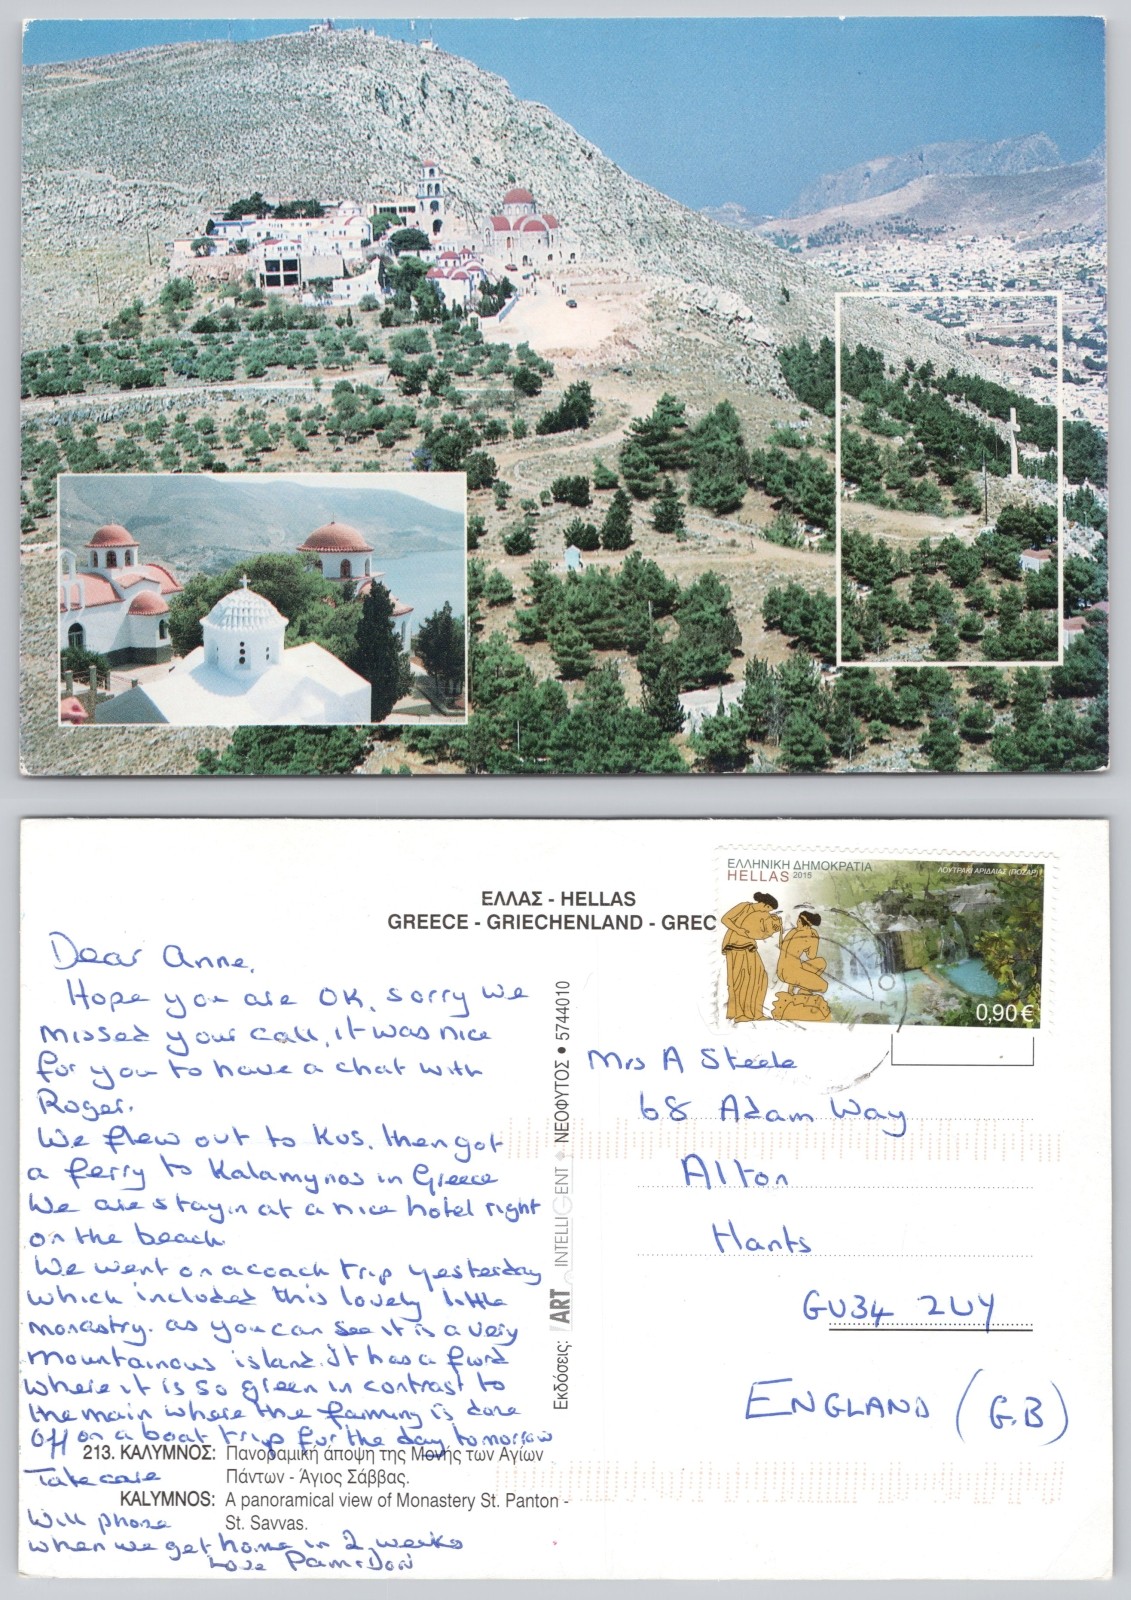 ΕΛΛΗΝΙΚΗ ΔΗΜΟΚΡΑΤΙΑ
HELLAS 2015
ΛΟΥΤΡΑΚΙ ΑΡΙΔΑΙΑΣ (ΠΟΖΑΡ)
0,90 €
ΕΛΛΑΣ - HELLAS
GREECE - GRIECHENLAND - GREC
Dear Anne,
Hope you are OK, sorry we
missed your call, it was nice
for you to have a chat with
Roger.
We flew out to Kos, then got
a ferry to Kalamynos in Greece
We are stayin at a nice hotel right
on the beach
We went on a coach trip yesterday
which included this lovely little
monastry. as you can see it is a very
mountainous island. It has a fiord
where it is so green in contrast to
the main where the farming is done
Off on a boat trip for the day tomorrow
Take care
Will phone
when we get home in 2 weeks
Love Pam & Don
213. ΚΑΛΥΜΝΟΣ: Πανοραμική άποψη της Μονής των Αγίων
Πάντων - Άγιος Σάββας.
KALYMNOS: A panoramical view of Monastery St. Panton -
St. Savvas.
Εκδόσεις: ART INTELLIGENT ΝΕΟΦΥΤΟΣ • 5744010
Mrs A Steele
68 Adam Way
Alton
Hants
GU34 2UY
ENGLAND (G.B)